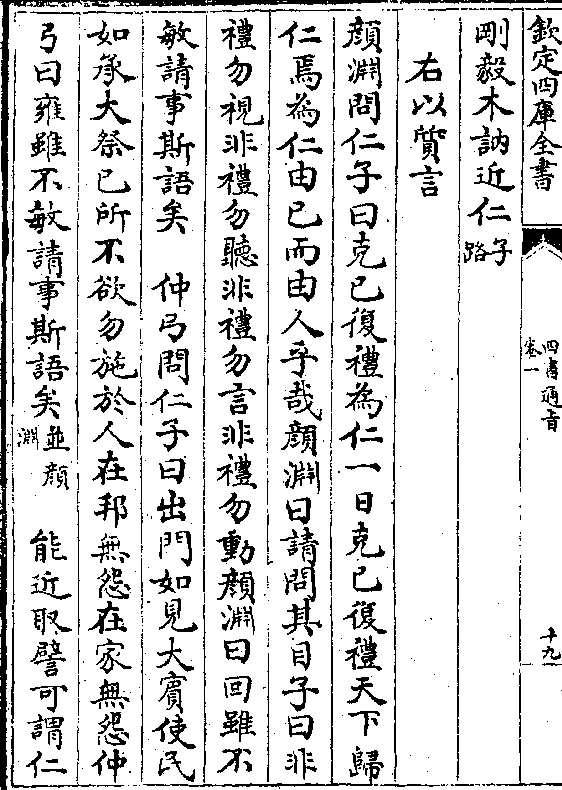 欽定四庫全書
四書通旨
卷一
十九
剛毅木訥近仁子路
右以質言
顔淵問仁子曰克已復禮為仁一日克已復禮天下歸
仁焉為仁由已而由人乎哉顔淵曰請問其目子曰非
禮勿視非禮勿聽非禮勿言非禮勿動顔淵曰回雖不
敏請事斯語矣　仲弓問仁子曰出門如見大賓使民
如承大祭已所不欲勿施於人在邦無怨在家無怨仲
弓曰雍雖不敏請事斯語矣並顔淵　能近取譬可謂仁